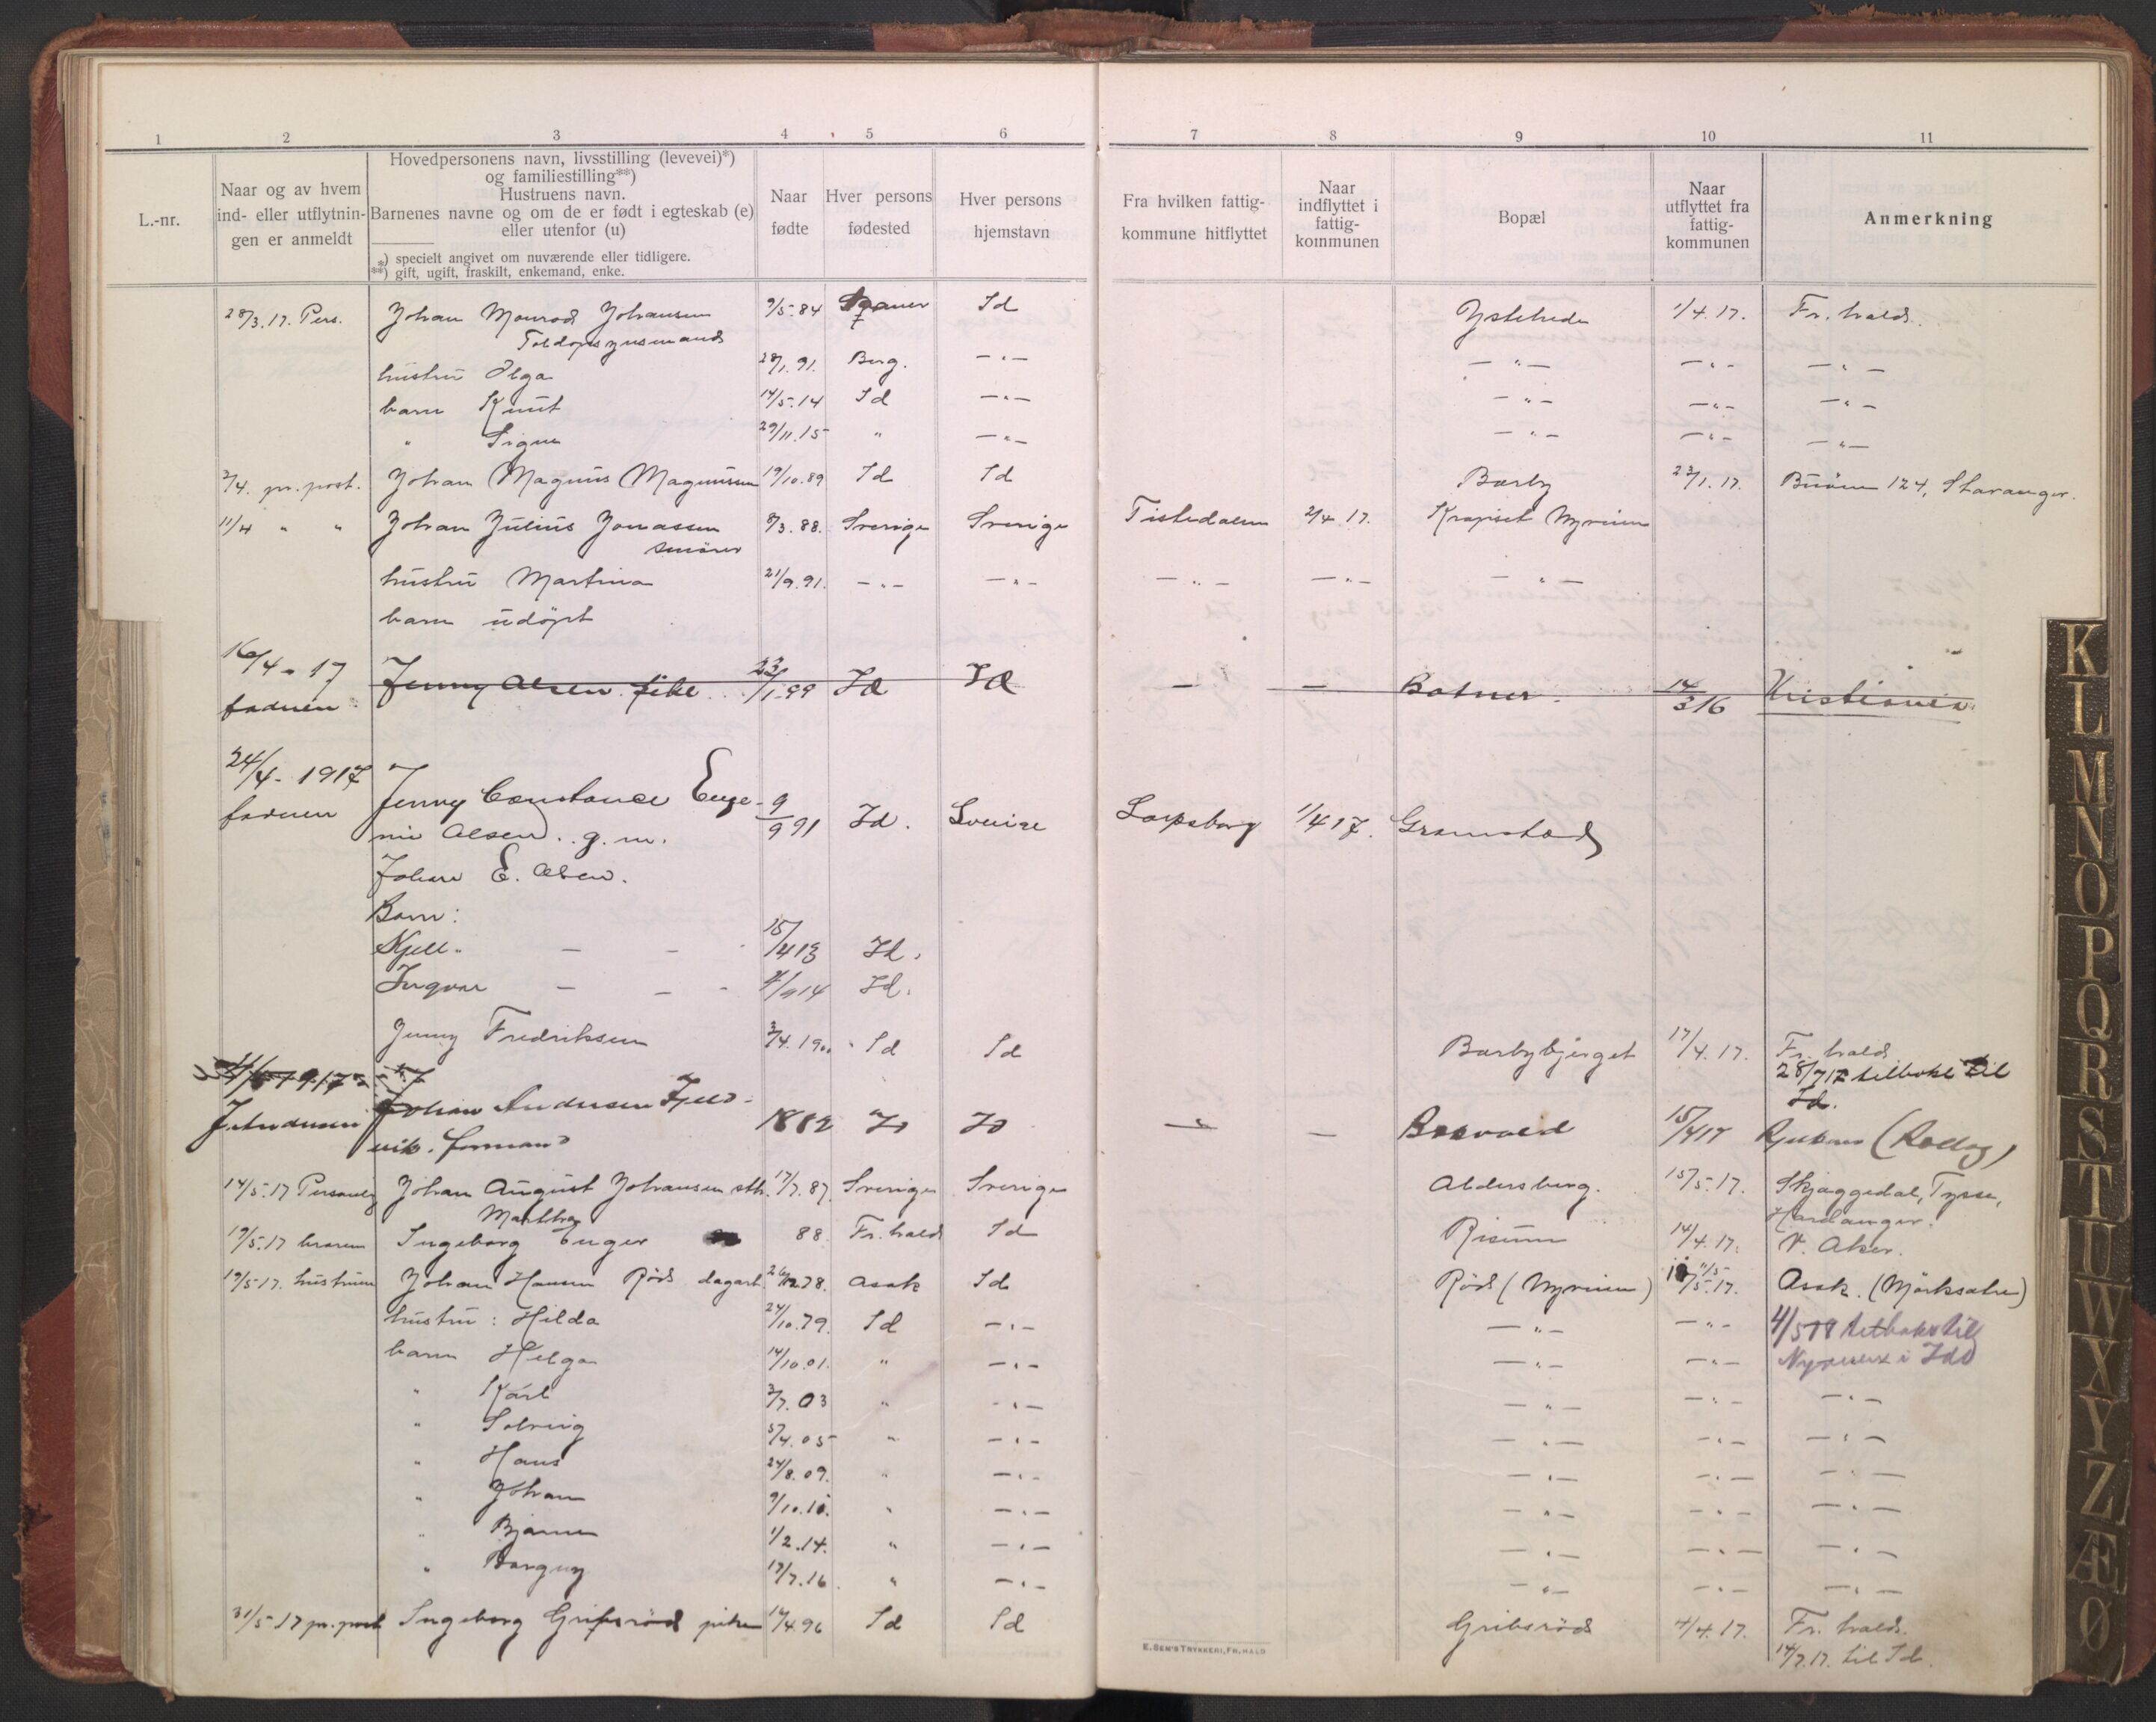 1 2 3 4 5 6 7 8 9 10 11
L.-nr.
Naar og av hvem
ind- eller utflytnin-
gen er anmeldt
Hovedpersonens navn, livsstilling (levevei)*)
og familiestilling**)
Hustruens navn.
Barnenes navne og om de er født i egteskab (e)
eller utenfor (u)
*) specielt angivet om nuværende eller tidligere.
**) gift, ugift, fraskilt, enkemand, enke.
Naar
fødte
Hver persons
fødested
Hver persons
hjemstavn
Fra hvilken fattig-
kommune hitflyttet
Naar
indflyttet i
fattig-
kommunen
Bopæl
Naar
utflyttet fra
fattig-
kommunen
Anmerkning
28/3.17. Pers. Johan Monrad Johansen 9/5-84 Id Ystehede 1/4.17. Fr.hald.
Toldopsynsmand
hustru Olga 28/1.91. Berg. -"- -"- -"- -"-
barn Knut 14/5.14 Id -"- -"- -"- -"-
" Signe 29/11.15 " -"- -"- -"- -"-
3/4. pr. post. Johan Magnus Magnussen 19/10.89 Id Id Barby 23/1.17. 124, Stavanger.
11/4 " " Johan Julius Jonassen 8/3.88. Sverige Sverige Tistedalen 2/4.17. Krapset Nyveien
smører
hustru Martina 21/9.91. -"- -"- -"- -"- -"-
barn udøpt
16/4-17 Jenny Olsen. pike. 23/1.99 Id Id - - Botner. 14/3 16 Kristiania.
faderen
24/4-1917 Jenny Constance Euge- 9/9 91 Id. Sverige Sarpsborg 1/4 17. Grimstad
faderen nie Olsen. g. m.
Johan E. Olsen.
Barn:
Kjell. - - 15/4 13 Id.
Ingvar - - - Id.
Jenny Fredriksen 3/4.1900. Id Id Barbybjerget 17/4.17. Fr.hald
28/7 17 tilbake til
Id.
J. Andersen Johan Andersen Fjeld- 1882 Id Id - - 15/4 17 Rjukan
vik. formand
14/5.17 Personlig Johan August Johansen sth. 17/7.87. Sverige Sverige Aldersberg. 15/5.17. Skjæggedal, Tysse,
Hardanger.
19/5.17 Ingeborg Enger 88. Fr.hald Id Risum 14/4.17. V. Aker.
19/5-17. hustruen Johan Hansen Röd dagarb. 26/12 78. Asak Id Röd (Nyveien) 11/5 /5.17. Asak. (Mörksætre)
hustru: Hilda 24/10.79. Id -"- -"- -"- 4/5 18 tilbake til
barn Helga 14/10.01. " -"- -"- -"- Nyveien i Idd
" Karl 3/7.03 " -"- -"- -"- -"-
" Solveig 5/4.05 " -"- -"- -"- -"-
" Hans 24/8.09. " -"- -"- -"- -"-
" Johan 9/10.10. " -"- -"- -"- -"-
" Bjarne 1/2.14. " -"- -"- -"- -"-
" Borgny 17/7.16. " -"- -"- -"- -"-
31/5-17 pr. post Ingeborg Gribsröd pike 14/4 96 Id Id Gribsröd 4/4.17. Fr.hald.
14/7.17. til Id.
K. SEM'S TRYKKERI, FR.HALD
K
L
M
N
O
P
Q
R
S
T
U
W
X
Y
Z
Æ
Ø